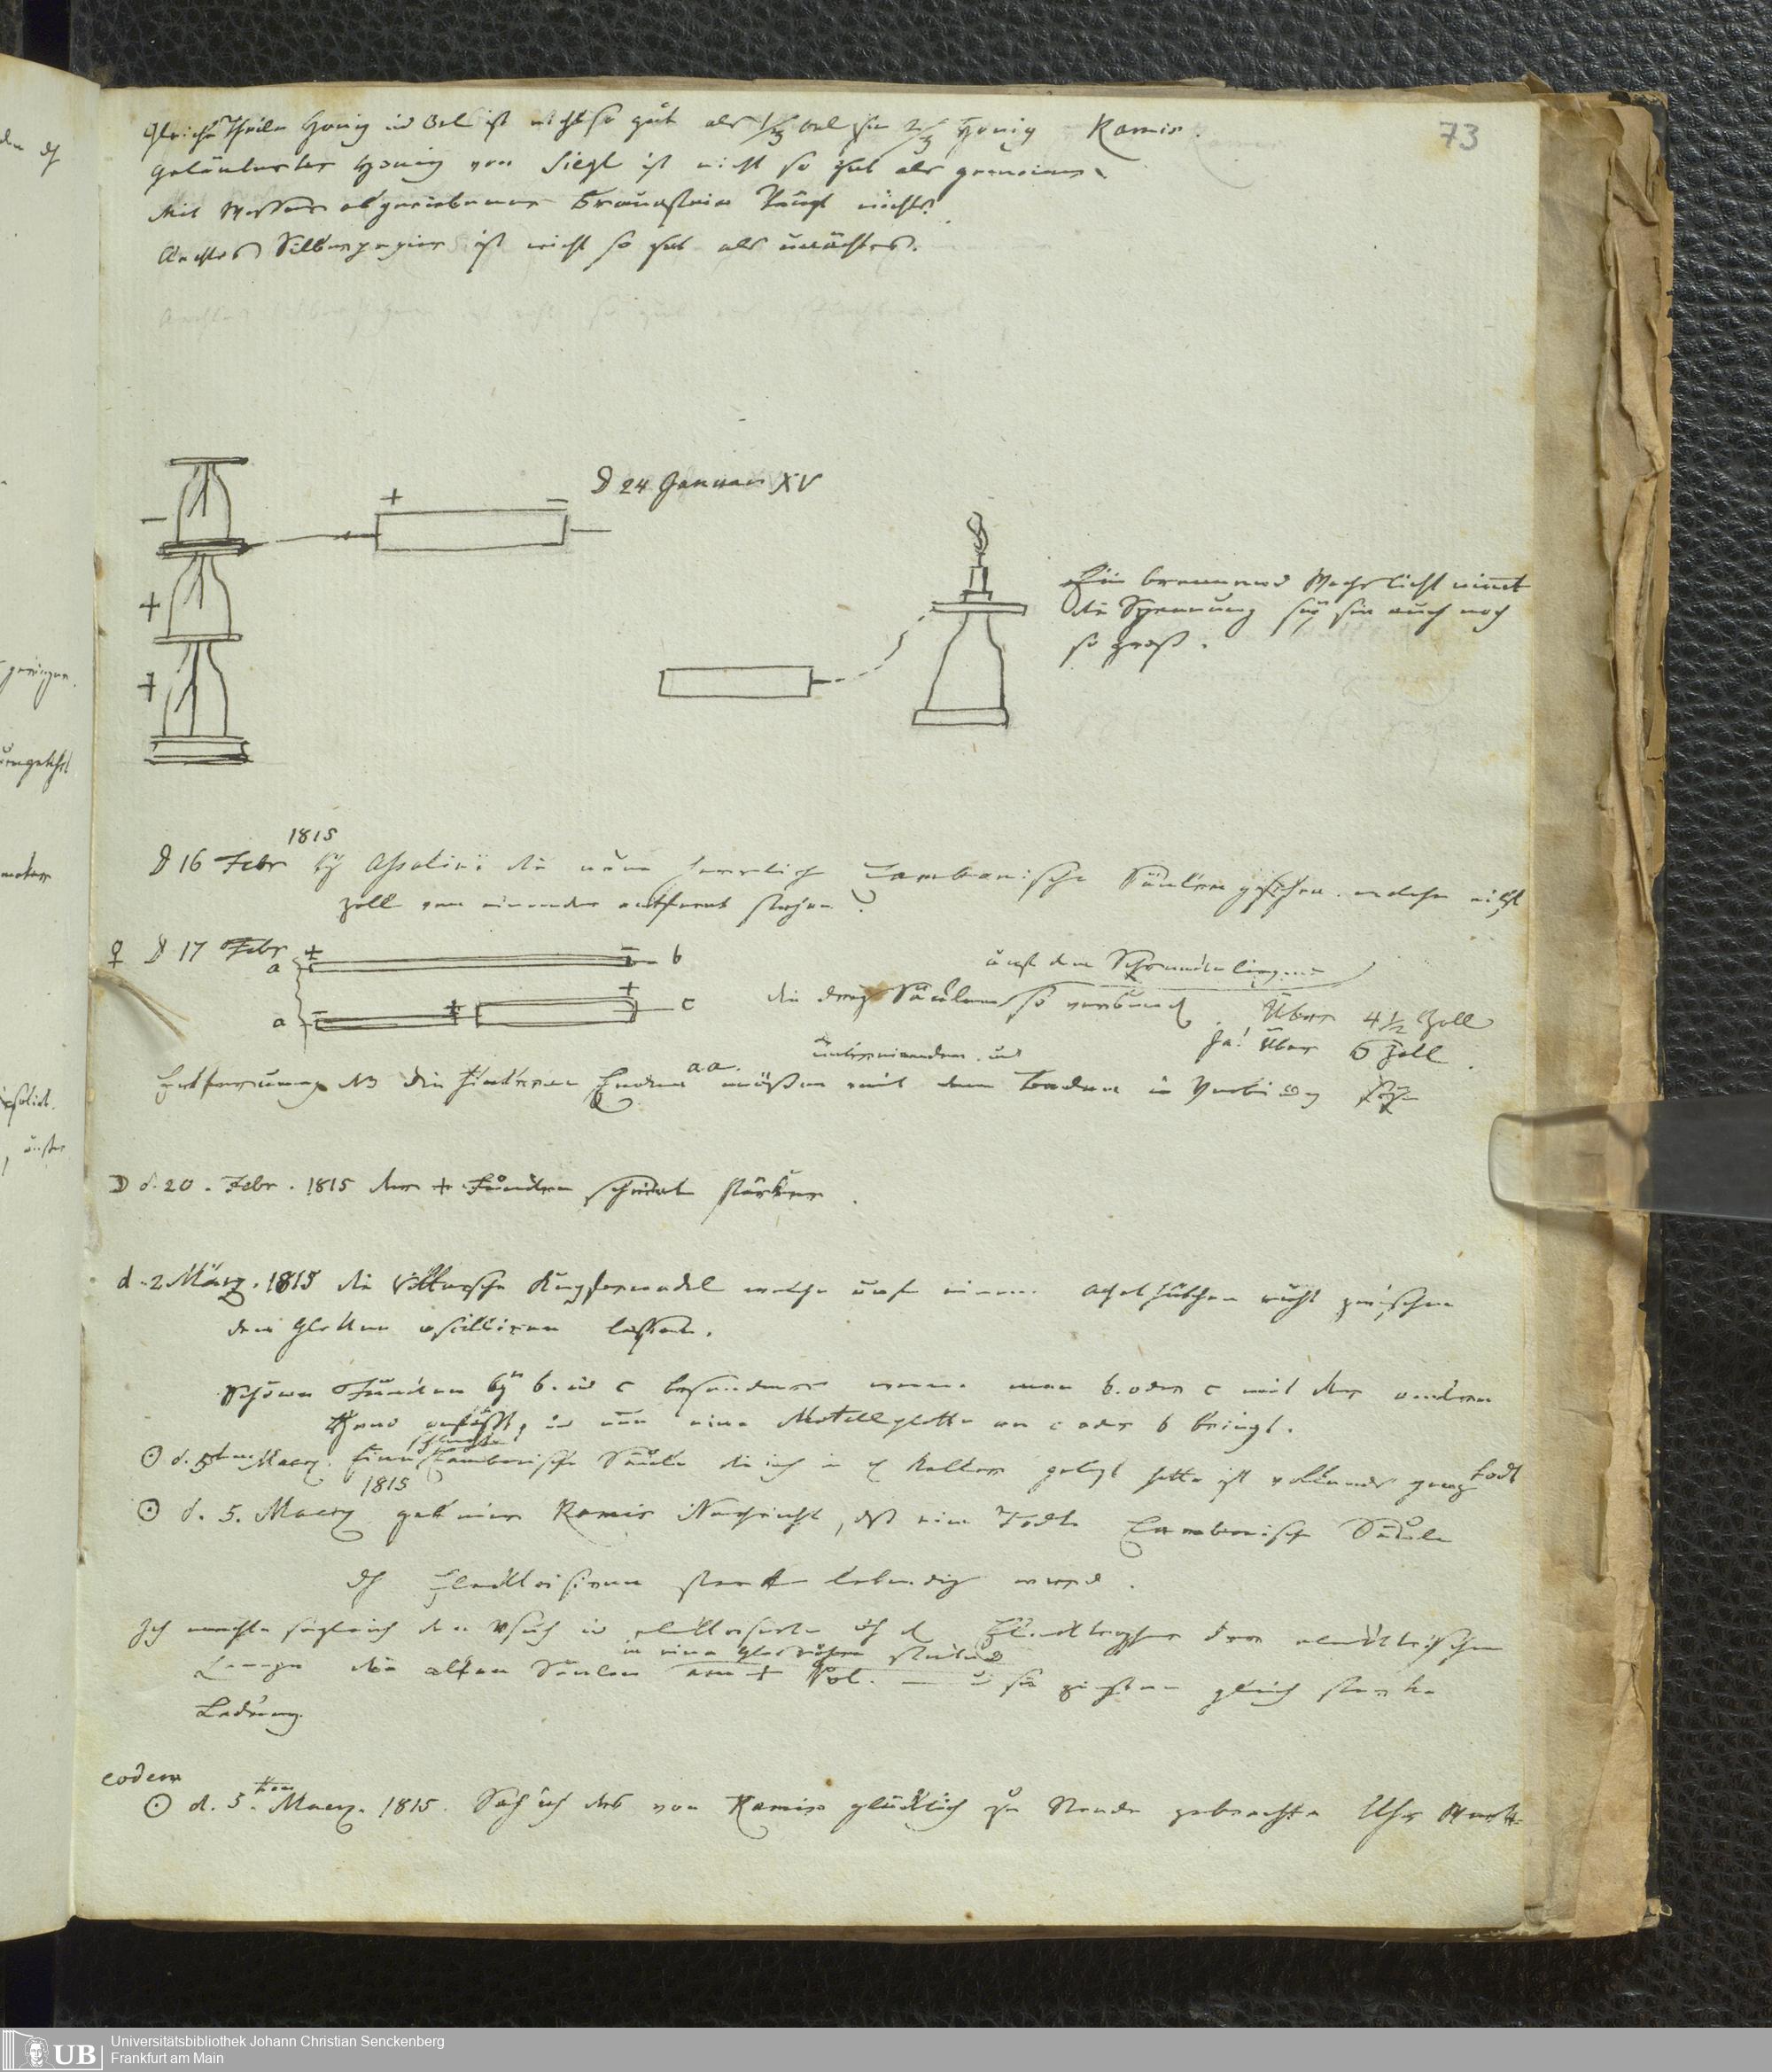 73
Gleiche Theile Honig und Oel ist nicht so gut als 1/3 Oel zu 2/3 Honig Ramis.
geläuterter Honig von Siegl ist nicht so gut als gemeiner
Mit Wasser abgeriebener Braunstein taugt nichts.
Aechtes Silberpapier ist nicht so gut als unächtes.
d 24 Januar XV
+ −
−
+
+
Ein brennend Wachslicht nimt
die Spannung sey sie auch noch
so groß.
1815
d 16 Febr bey Assalini die neue Zambonische Säulen gesehen. welche
Zoll von einander entfernt stehen
♀ d 17 Febr + − b
a
auf dem
− + + c
a
die drey Säulen so
Über 4 1/2 Zoll
Ja! Über 6 Zoll.
untereinander und
Entfernung NB die hinteren Enden aa. müßen mit dem Boden in Verbindung
☽ d. 20. Febr. 1815 der + Funken scheint stärker.
d. 2 März. 1815 die Kupfernadel welche auf einem Achathütchen ruht zwischen
den oscilliren lassen.
Schöne Funken bey b. und c besonders wenn man b. oder c mit der andern
Hand anfaßt, und nun eine Metallplatte an c oder b bringt.
☉ d. 5ten Maerz. Eine schlechte Zambonische Säule die ich in Keller gelegt hatte ist vollends ganz todt
1815
☉ d. 5. Maerz gab mir Ramis Nachricht, daß eine Todte Zambonische Säule
durch Elecktrisiren stark lebendig werd.
Ich machte sogleich den Versuch und durch d. Elecktrophor der elecktrischen
in eine Glasröhre
Lampe die alten Säulen am + Pol. gleich starke
Ladung.
eodem
☉ d. 5.ten Maerz. 1815. Sah ich das von Ramis glücklich zu Stande gebrachte Uhr
Universitätsbibliothek Johann Christian Senckenberg
Frankfurt am Main
UB